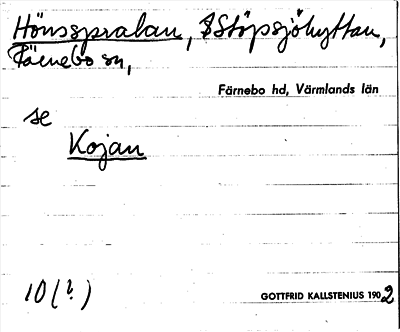 Hönsspralan, Stöpsjöhyttan,
Färnebo sn,
Färnebo hd, Värmlands län
se
Kojan
10(?)
GOTTFRID KALLSTENIUS 1902